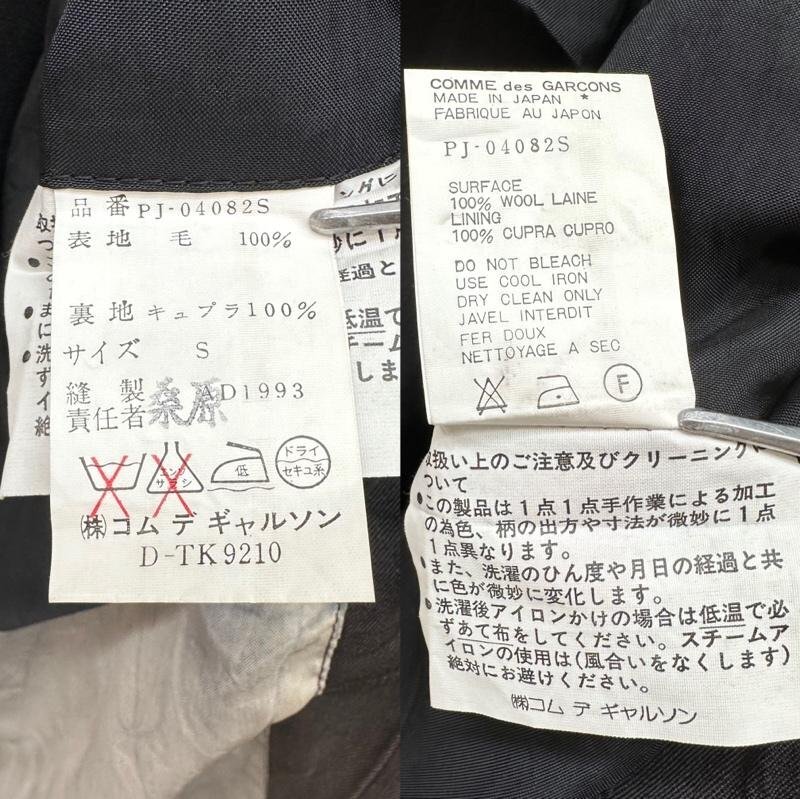 品番 PJ-04082S
表地 毛 100%
裏地 キュプラ100%
サイズ S
縫製 AD1993
責任者 桑原
エンソ
サラシ
低
ドライ
セキユ系
㈱コム デ ギャルソン
D-TK9210
COMME des GARCONS
MADE IN JAPAN *
FABRIQUE AU JAPON
PJ-04082S
SURFACE
100% WOOL LAINE
LINING
100% CUPRA CUPRO
DO NOT BLEACH
USE COOL IRON
DRY CLEAN ONLY
JAVEL INTERDIT
FER DOUX
NETTOYAGE A SEC
F
取扱い上のご注意及びクリーニングに
ついて
●この製品は1点1点手作業による加工
の為色、柄の出方や寸法が微妙に1点
1点異なります。
●また、洗濯のひん度や月日の経過と共
に色が微妙に変化します。
●洗濯後アイロンかけの場合は低温で必
ずあて布をしてください。スチームア
イロンの使用は(風合いをなくします)
絶対にお避けください。
㈱コム デ ギャルソン